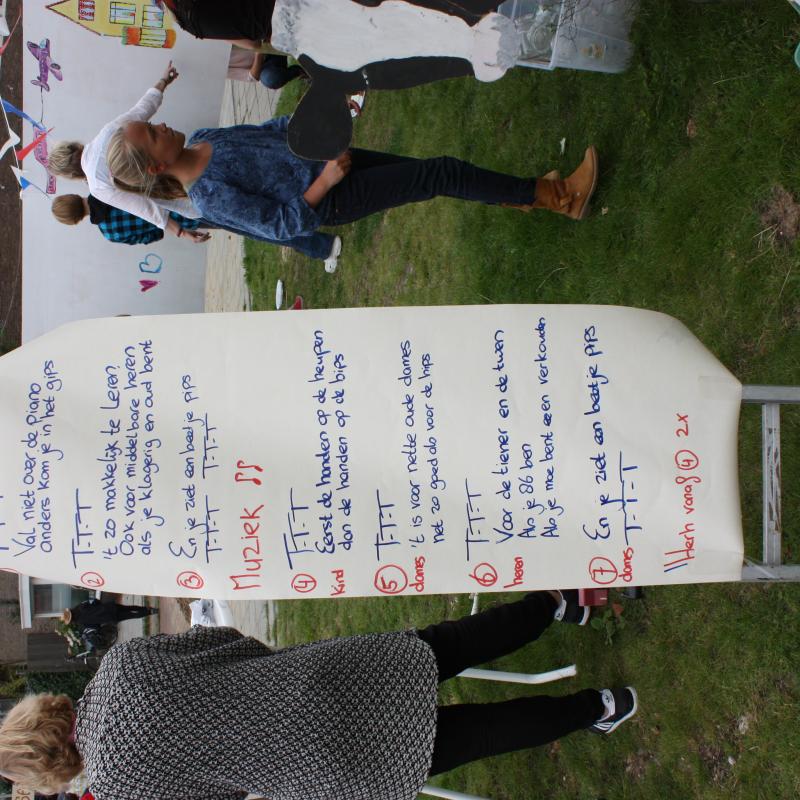 T-T-T
Val niet over de piano
anders kom je in het gips
② T-T-T
't zo makkelijk te leren!
Ook voor middelbare heren
als je klagerig en oud bent
③ En je ziet een beetje pips
T-T-T T-T-T
Muziek ♫
④ T-T-T
kind Eerst de handen op de heupen
dan de handen op de bips
⑤ T-T-T
dames 't is voor nette oude dames
net zo goed als voor de hips
⑥ T-T-T
heren Voor de tiener en de twen
Als je 86 ben
Als je moe bent en verkouden
⑦ En je ziet een beetje pips
dames T-T-T
"Herh vanaf ④ 2x